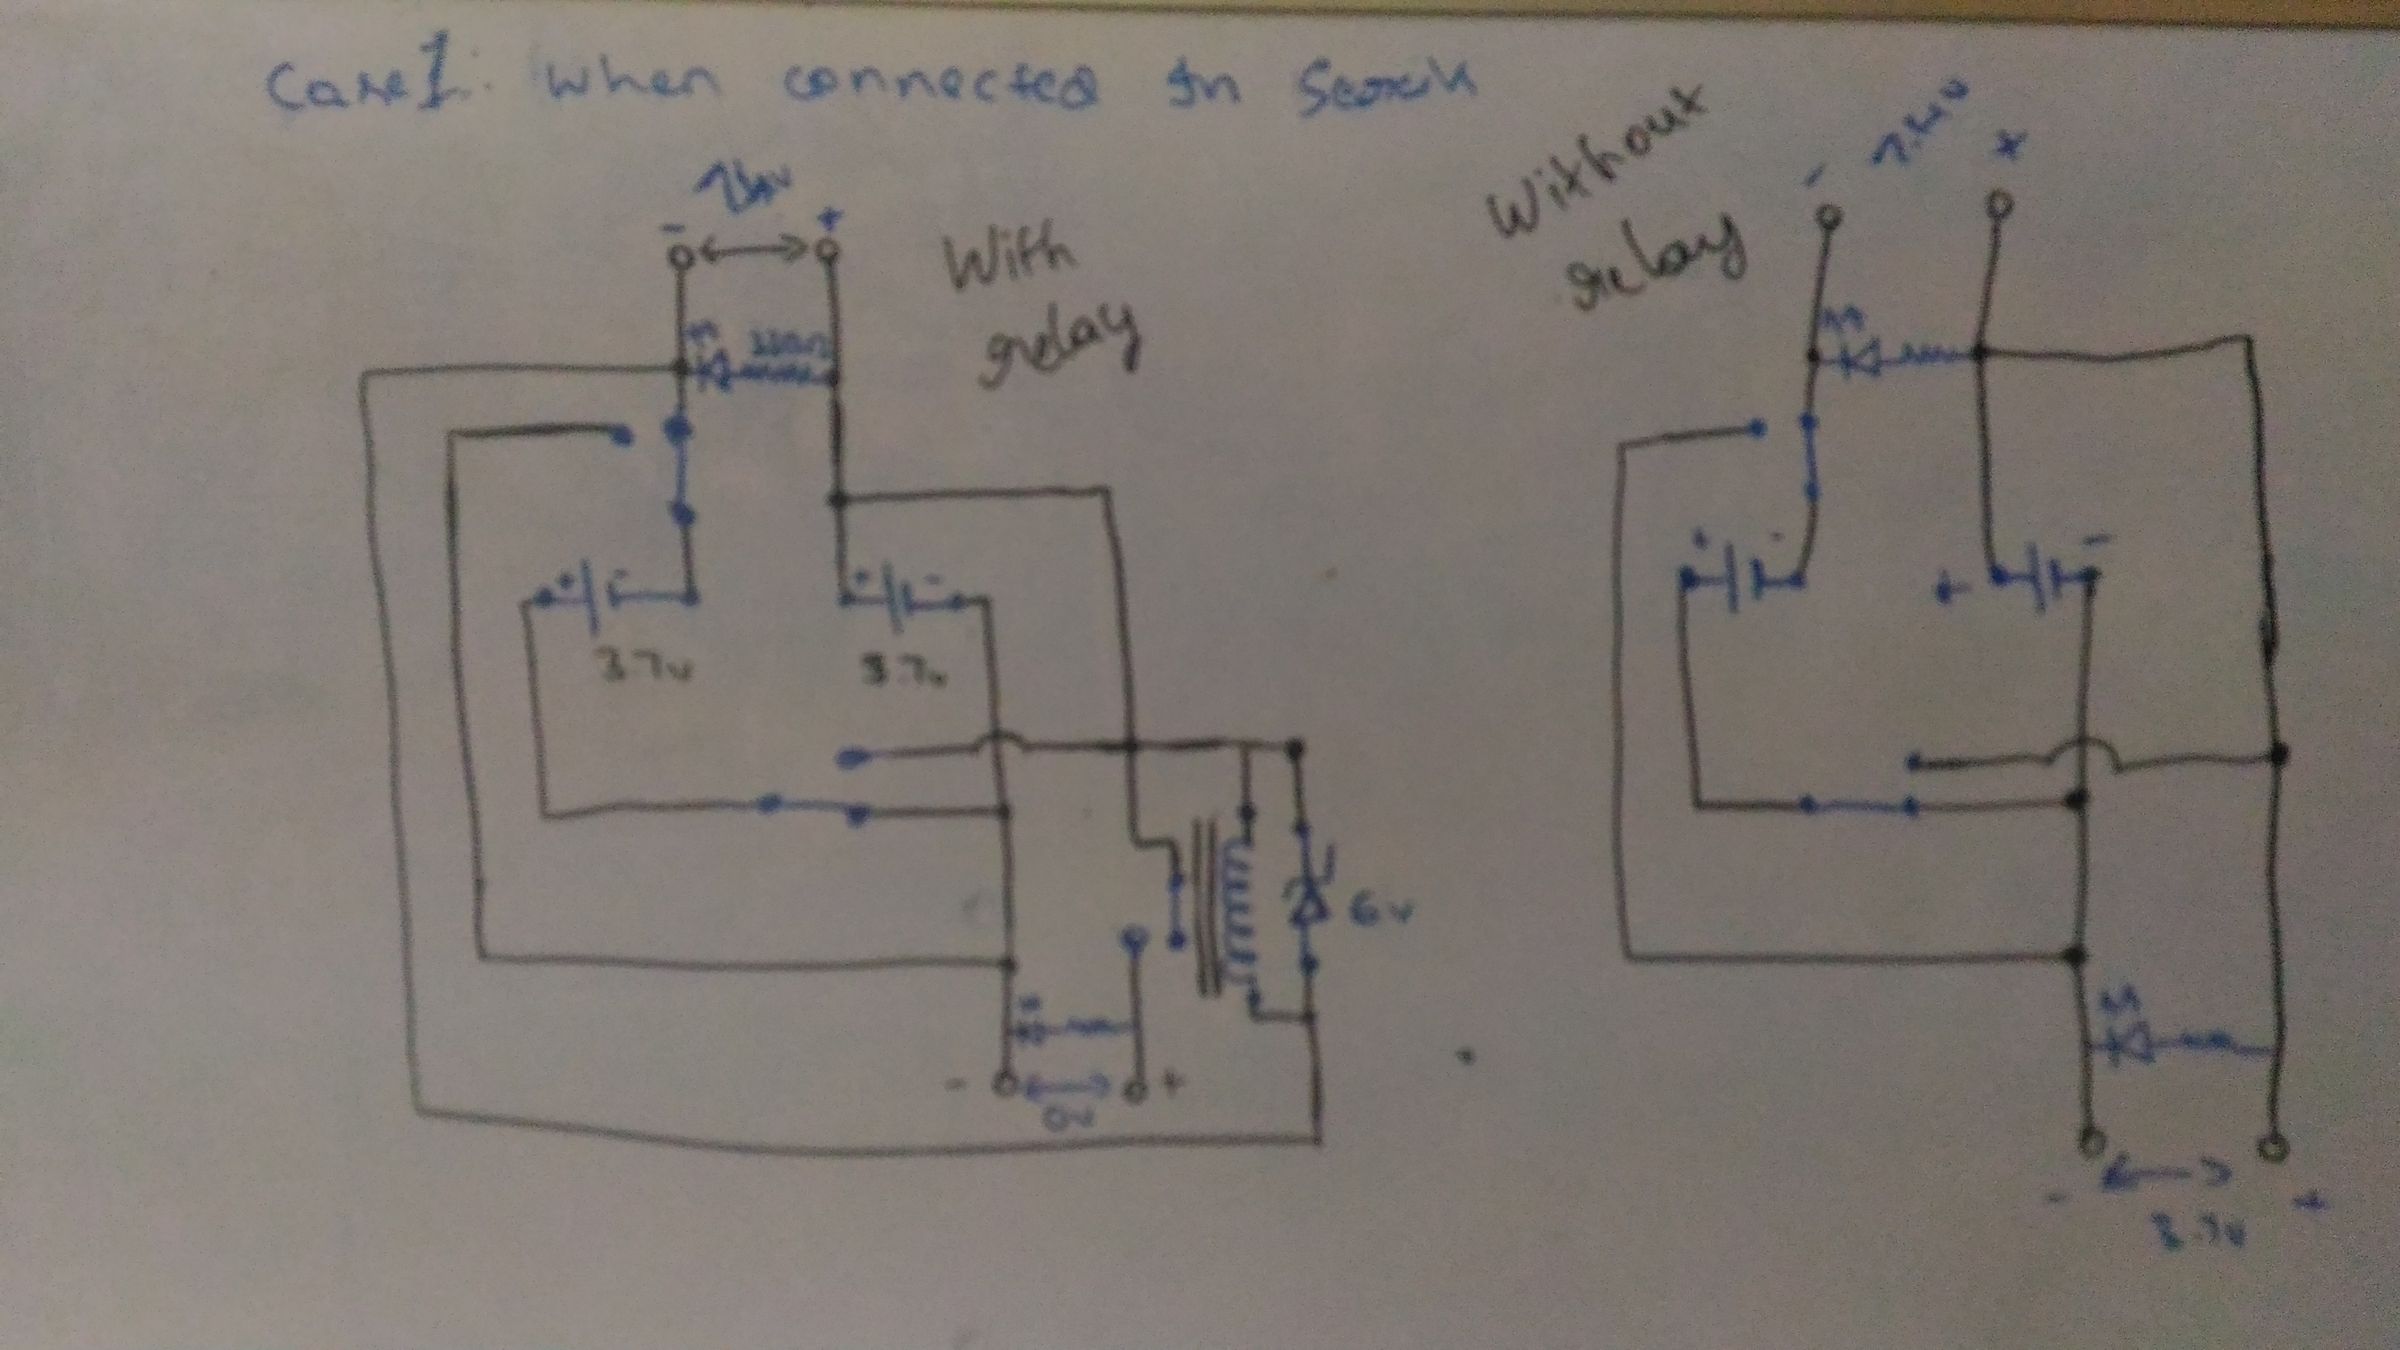 Case 1: When connected In Series
With
relay
- 7.4v +
330Ω
+ - + -
3.7v 3.7v
6v
- +
0v
Without
relay
- 7.4v +
+ - + -
- +
3.7v